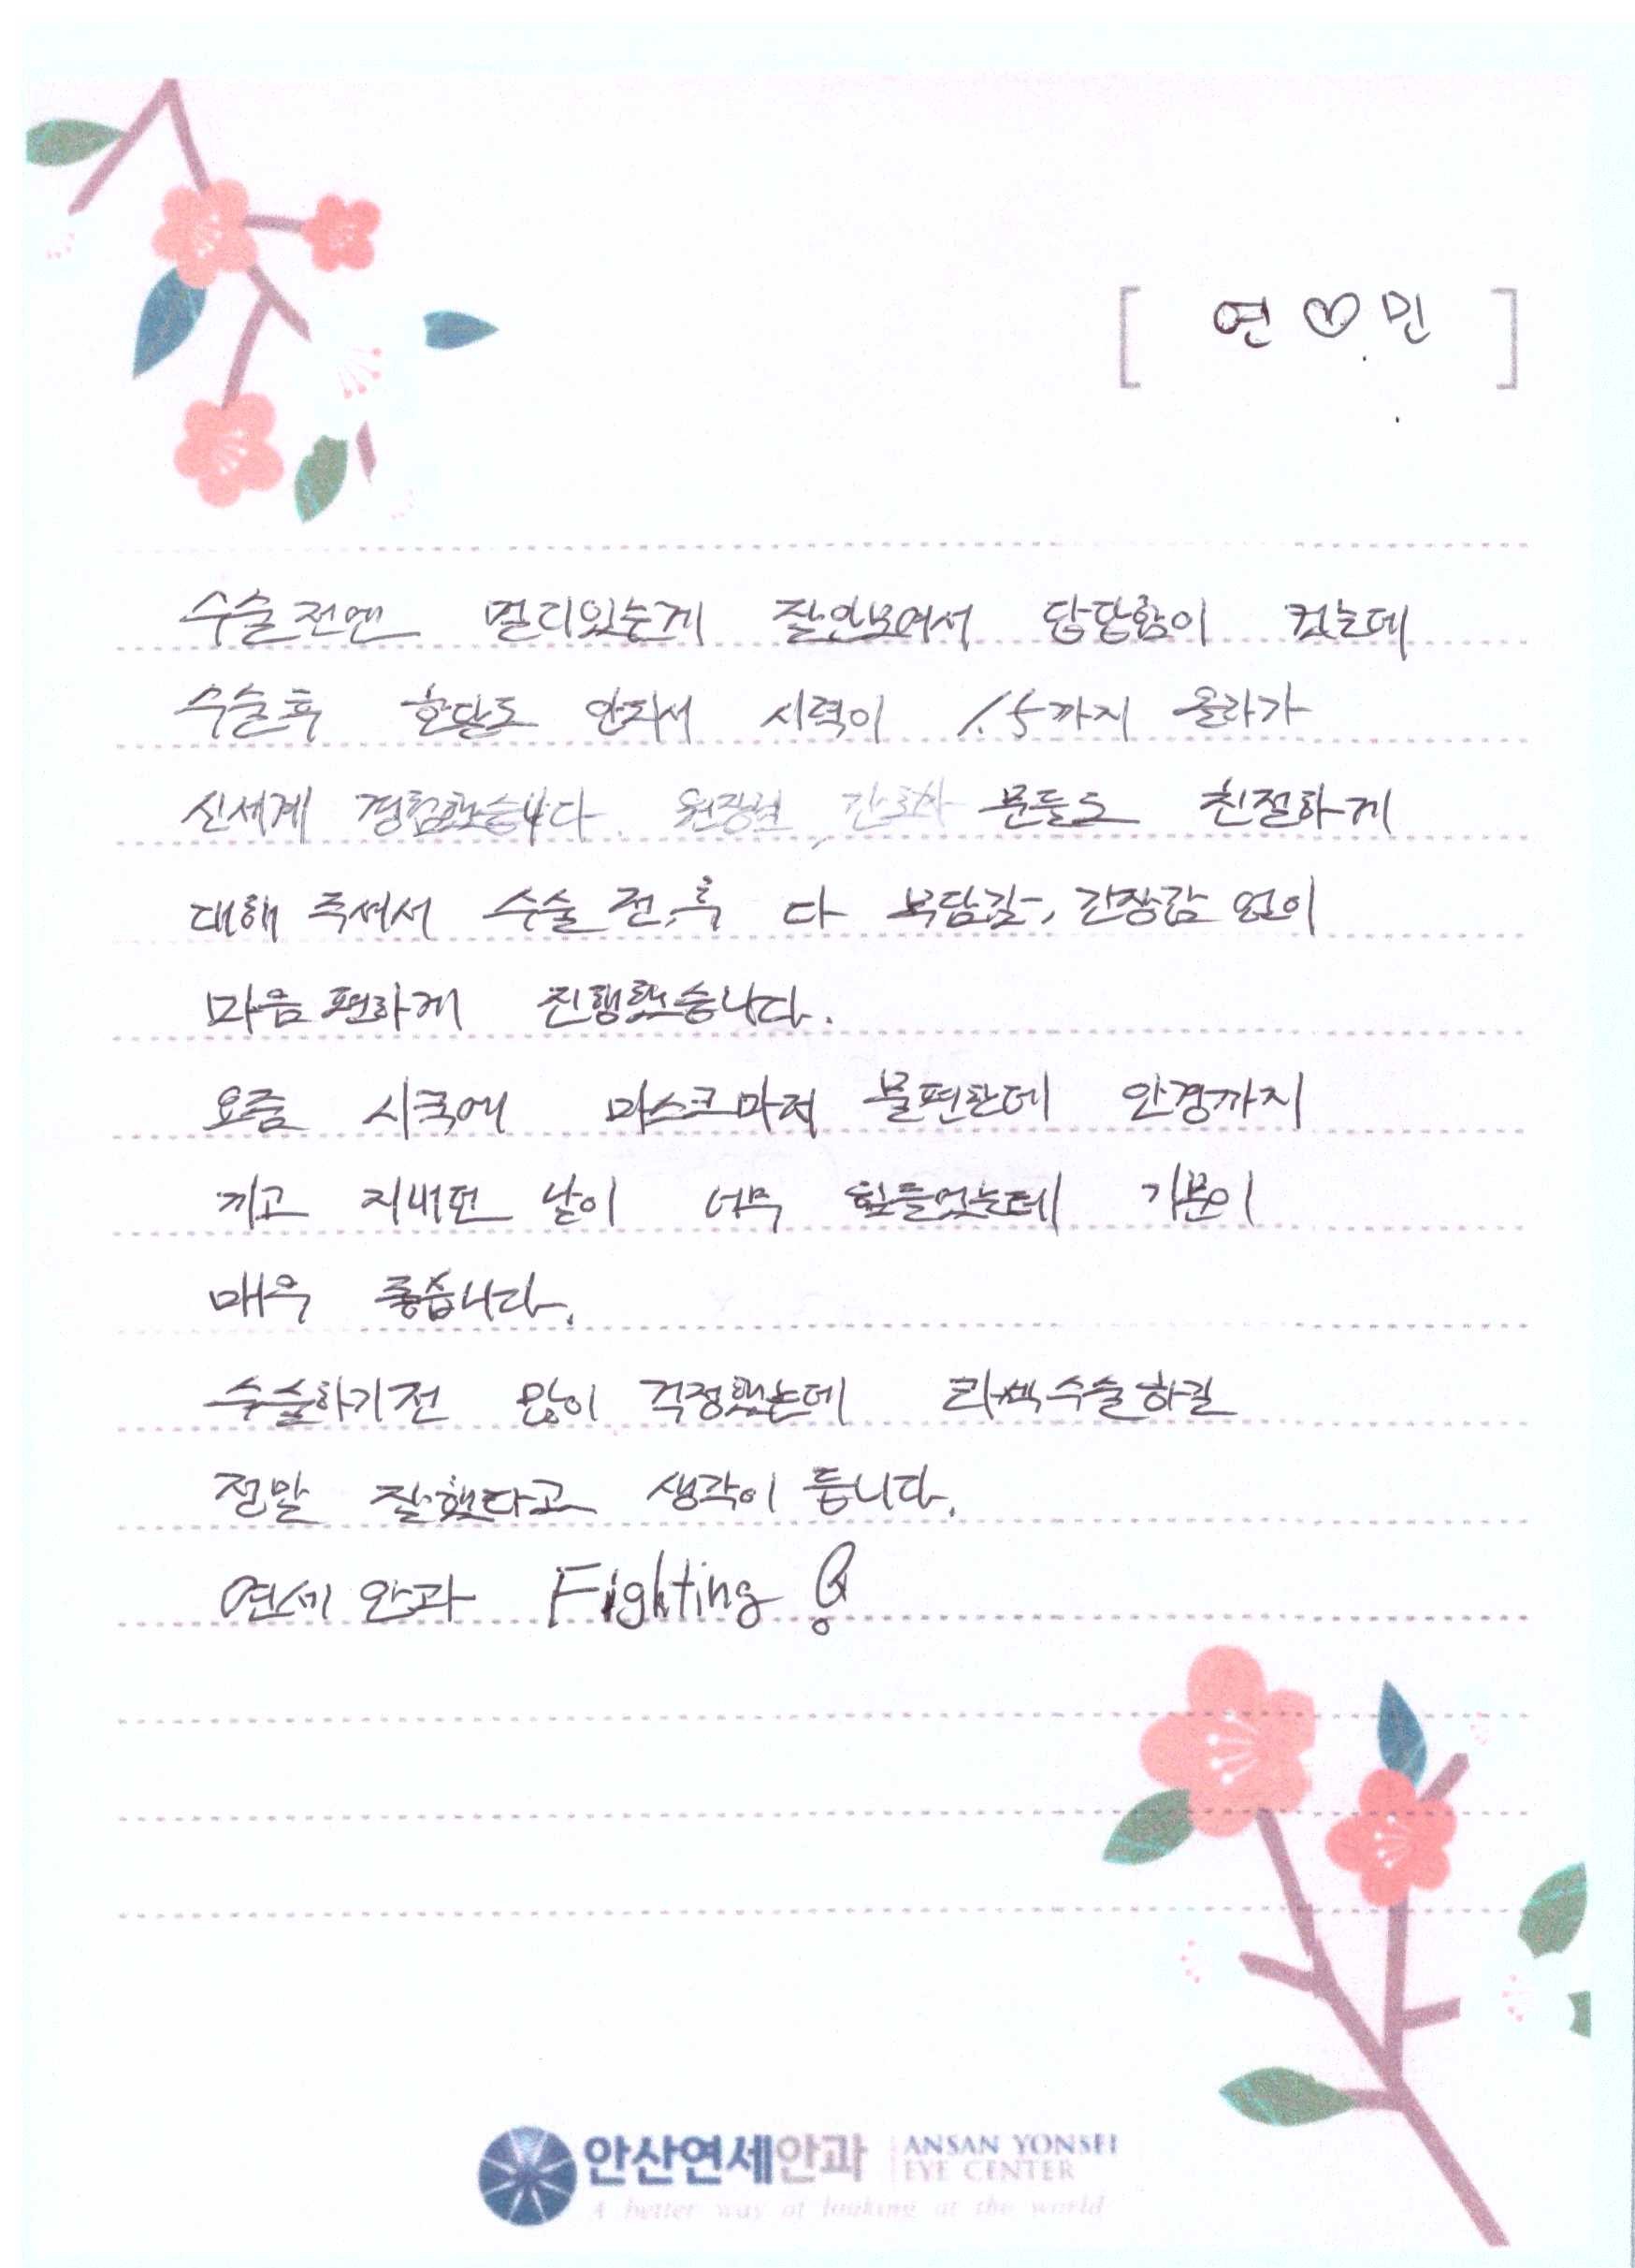 [ 연♡민 ]
수술전엔 멀리있는게 잘안보여서 답답함이 컸는데
수술후 한달도 안되서 시력이 1.5까지 올라가
신세계 경험했습니다. 원장님, 간호사 분들도 친절하게
대해 주셔서 수술 전,후 다 부담감, 긴장감 없이
마음편하게 진행했습니다.
요즘 시국에 마스크마저 불편한데 안경까지
끼고 지내던 날이 너무 힘들었는데 기분이
매우 좋습니다.
수술하기전 많이 걱정했는데 라섹수술하길
정말 잘했다고 생각이 듭니다.
연세 안과 Fighting!
안산연세안과 ANSAN YONSEI
EYE CENTER
A better way of looking at the world